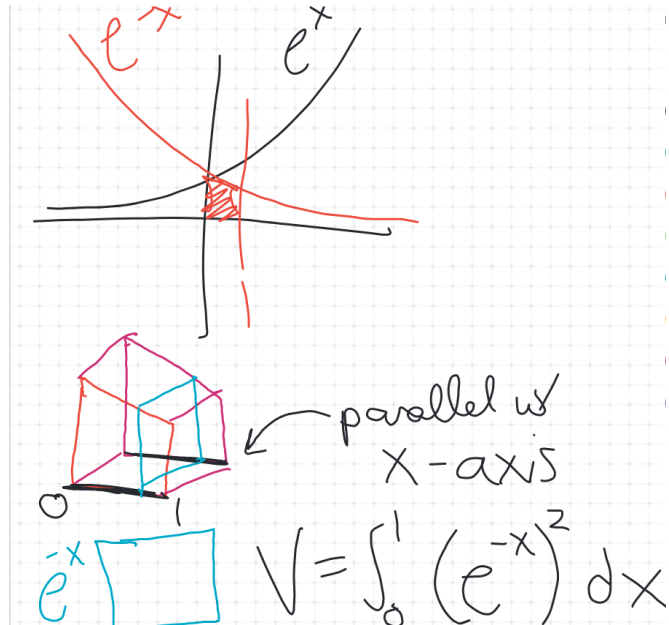 e^{-x} e^x
parallel w/
x-axis
0 1
e^{-x} V = ∫_0^1 (e^{-x})^2 dx